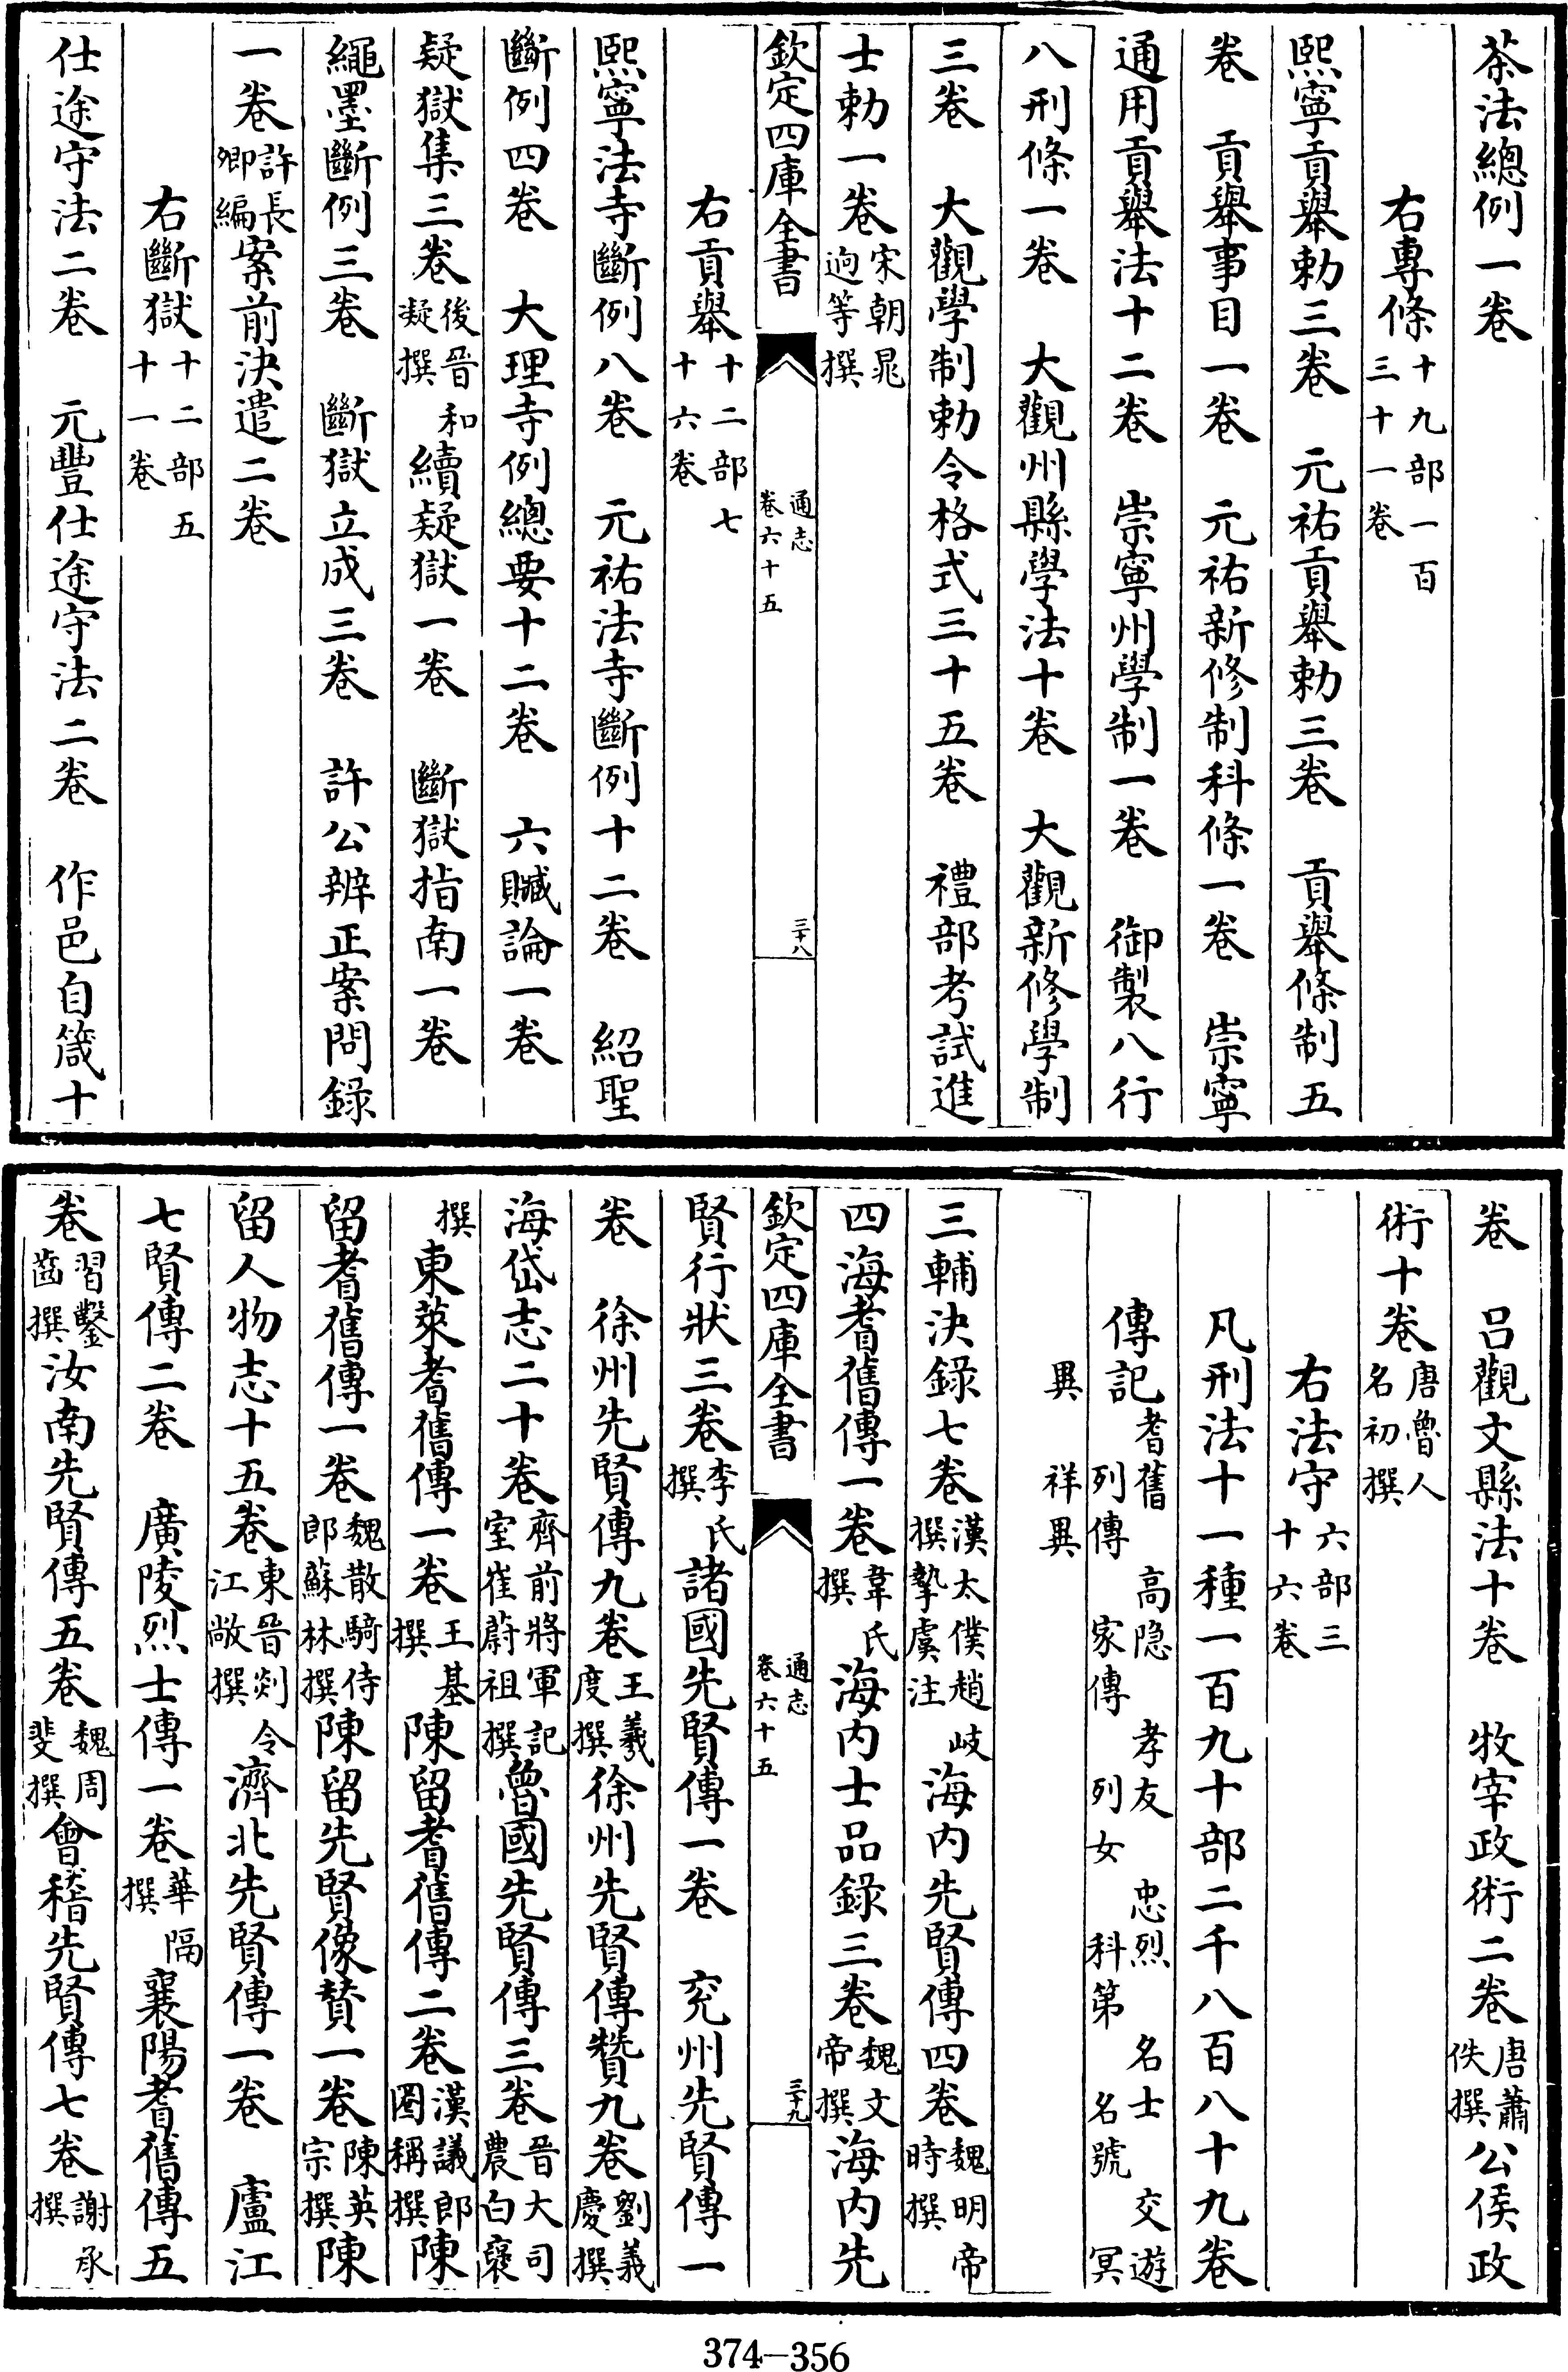 茶法總例一卷
右專條十九部一百三十一卷
熙寧貢舉勅三卷　元祐貢舉勅三卷　貢舉條制五
卷　貢舉事目一卷　元祐新修制科條一卷　崇寧
通用貢舉法十二卷　崇寧州學制一卷　御製八行
八刑條一卷　大觀州縣學法十卷　大觀新修學制
三卷　大觀學制勅令格式三十五卷　禮部考試進
士勅一卷宋朝晁逈等撰
欽定四庫全書　通志卷六十五　三十八
右貢舉十二部七十六卷
熙寧法寺斷例八卷　元祐法寺斷例十二卷　紹聖
斷例四卷　大理寺例總要十二卷　六贓論一卷
疑獄集三卷後晉和凝撰　續疑獄一卷　斷獄指南一卷
繩墨斷例三卷　斷獄立成三卷　許公辨正案問錄
一卷許長卿編　案前決遣二卷
右斷獄十二部五十一卷
仕途守法二卷　元豐仕途守法二卷　作邑自箴十
卷　呂觀文縣法十卷　牧宰政術二卷唐蕭佚撰　公侯政
術十卷唐魯人名初撰
右法守六部三十六卷
凡刑法十一種一百九十部二千八百八十九卷
傳記耆舊　高隱　孝友　忠烈　名士　交遊　列傳　家傳　列女　科第　名號　冥
異　祥異
三輔決錄七卷漢太僕趙岐撰摯虞注　海內先賢傳四卷魏明帝時撰
四海耆舊傳一卷韋氏撰　海內士品錄三卷魏文帝撰　海內先
欽定四庫全書　通志卷六十五　三十九
賢行狀三卷李氏撰　諸國先賢傳一卷　兖州先賢傳一
卷　徐州先賢傳九卷王羲度撰　徐州先賢傳贊九卷劉義慶撰
海岱志二十卷齊前將軍記室崔蔚祖撰　魯國先賢傳三卷晉大司農白裦
撰　東萊耆舊傳一卷王基撰　陳留耆舊傳二卷漢議郎圈稱撰　陳
留耆舊傳一卷魏散騎侍郎蘇林撰　陳留先賢像贊一卷陳英宗撰　陳
留人物志十五卷東晉剡令江敞撰　濟北先賢傳一卷　盧江
七賢傳二卷　廣陵烈士傳一卷華隔撰　襄陽耆舊傳五
卷習鑿齒撰　汝南先賢傳五卷魏周斐撰　會稽先賢傳七卷謝承撰
374—356